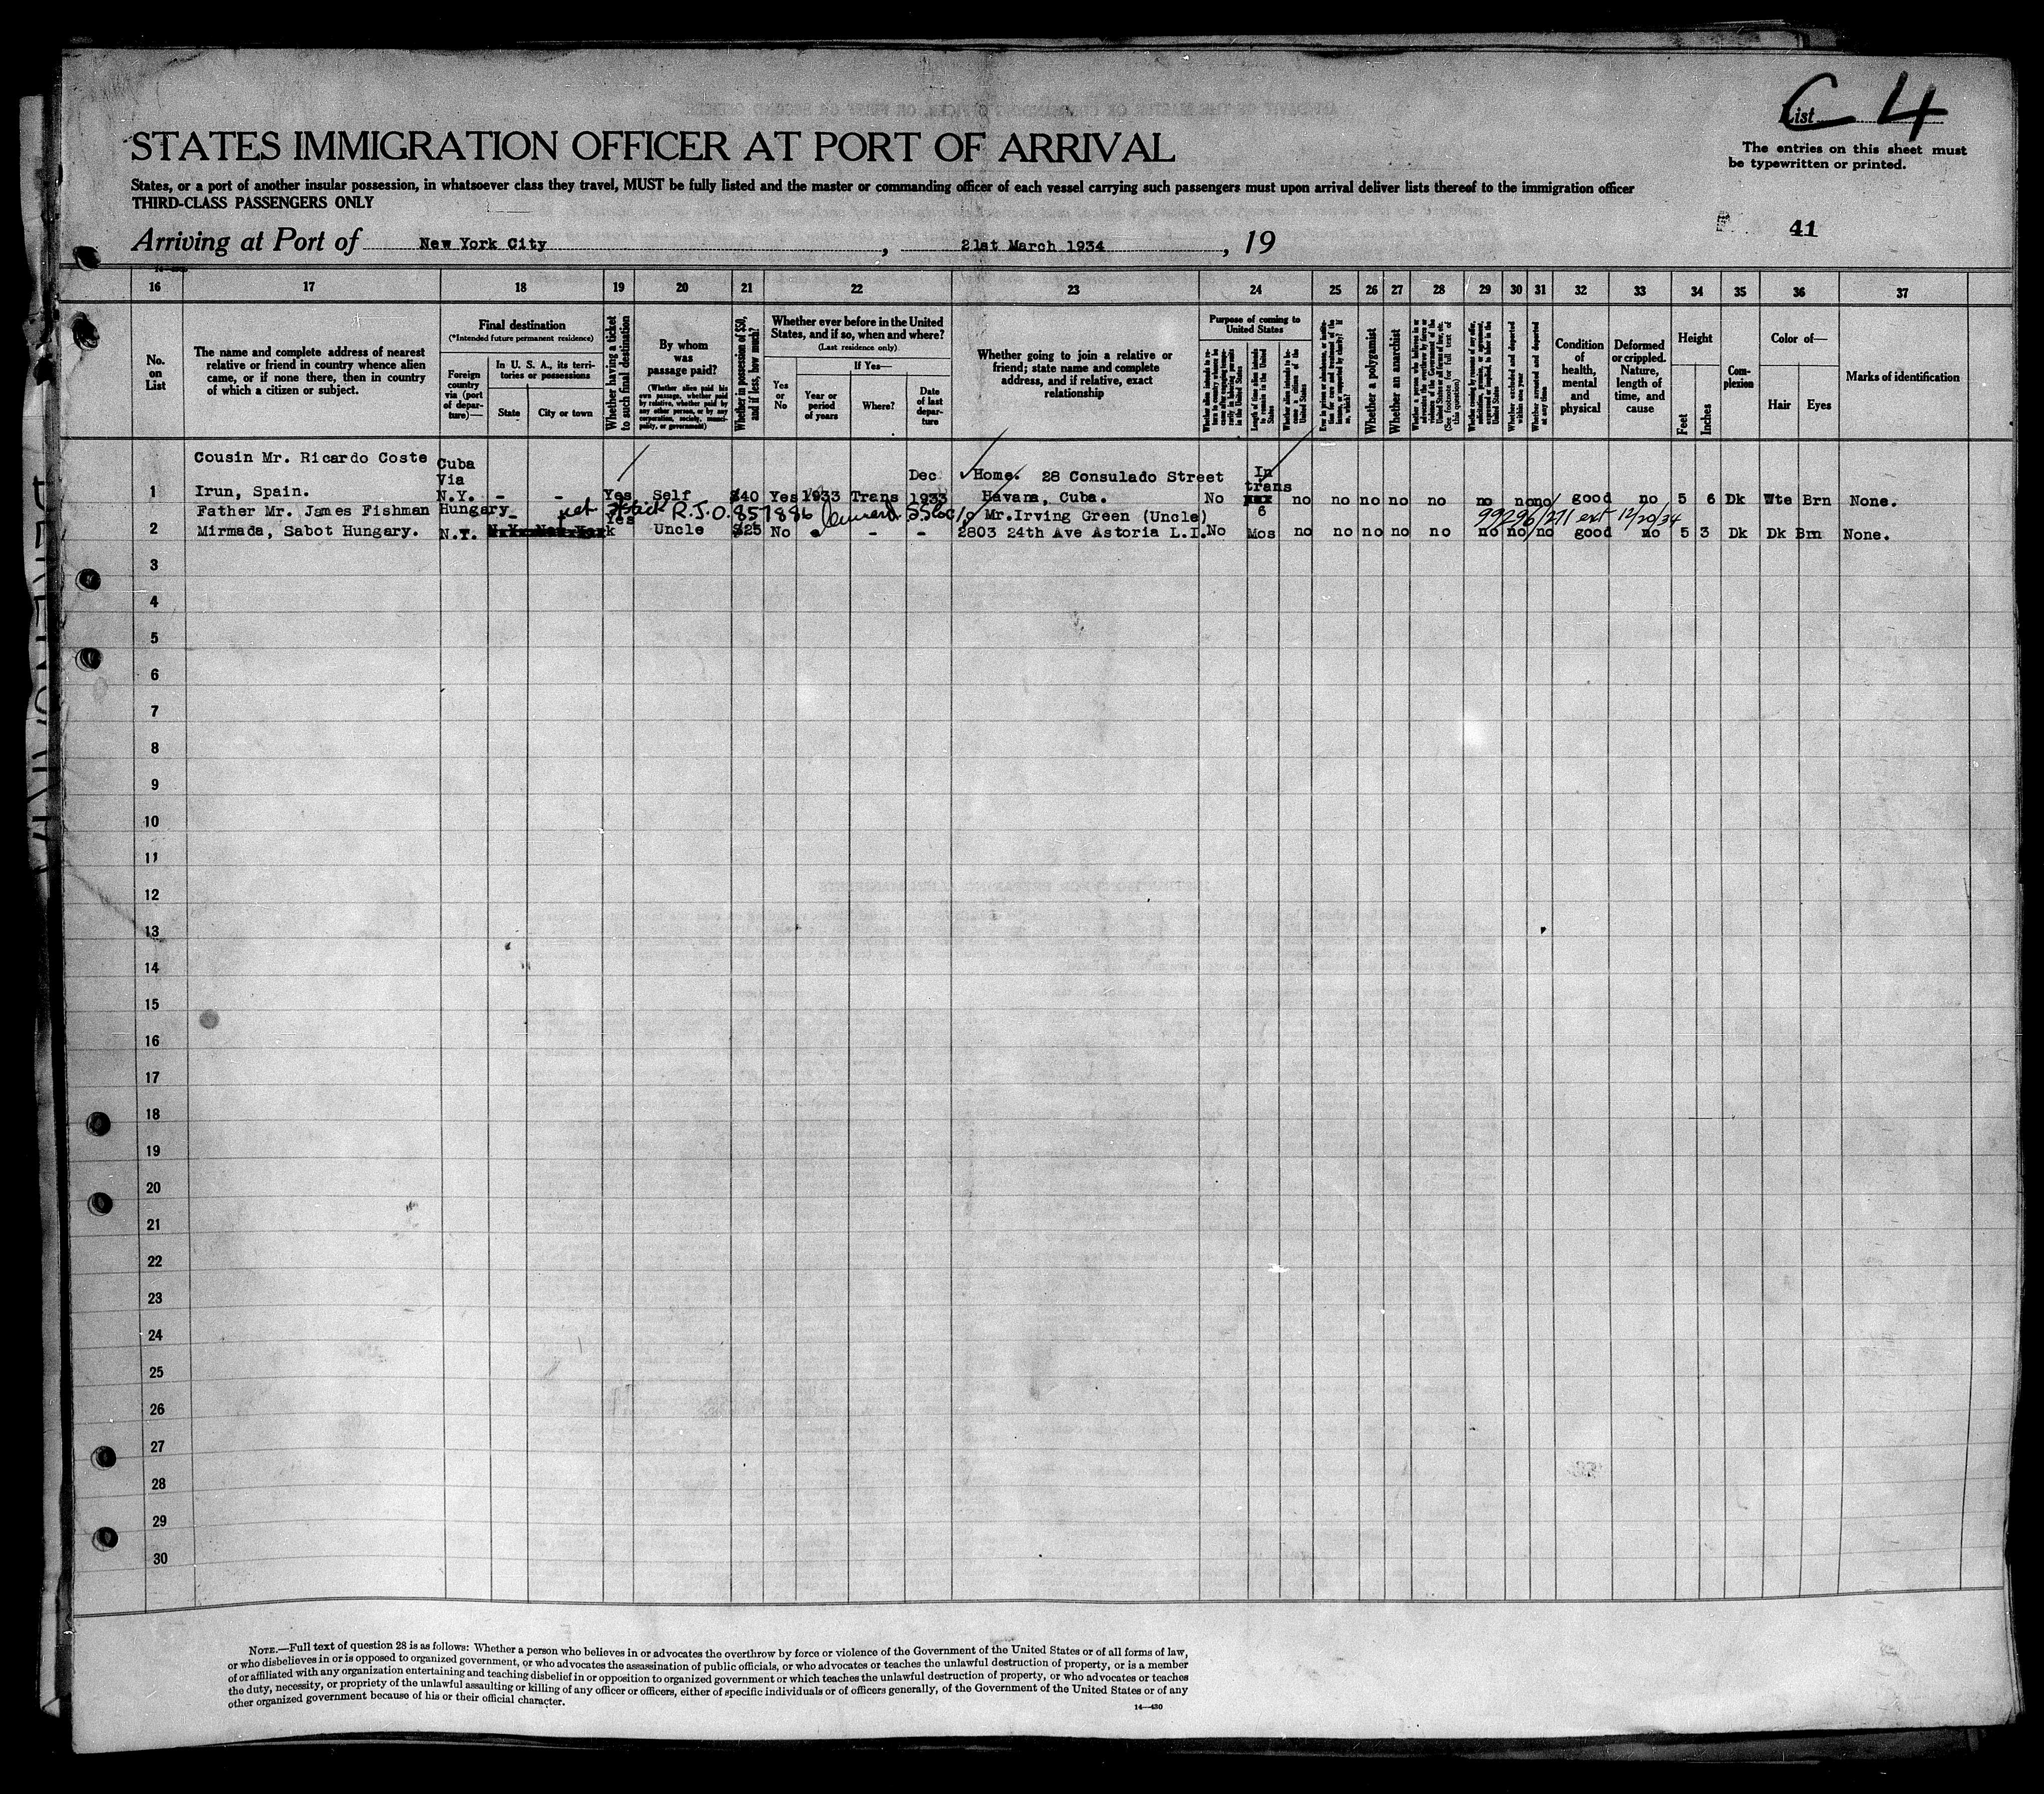 List C 4
STATES IMMIGRATION OFFICER AT PORT OF ARRIVAL
The entries on this sheet must
be typewritten or printed.
States, or a port of another insular possession, in whatsoever class they travel, MUST be fully listed and the master or commanding officer of each vessel carrying such passengers must upon arrival deliver lists thereof to the immigration officer
THIRD-CLASS PASSENGERS ONLY
41
Arriving at Port of New York City, 21st March 1934, 19
16 17 18 19 20 21 22 23 24 25 26 27 28 29 30 31 32 33 34 35 36 37
No. on List
The name and complete address of nearest relative or friend in country whence alien came, or if none there, then in country of which a citizen or subject.
Final destination
(*Intended future permanent residence)
Foreign country via (port of departure)—
In U. S. A., its territories or possessions
State
City or town
Whether having a ticket to such final destination
By whom was passage paid?
(Whether alien paid his own passage, whether paid by relative, whether paid by any other person, or by any corporation, society, municipality, or government)
Whether in possession of $50, and if less, how much?
Whether ever before in the United States, and if so, when and where?
(Last residence only)
Yes or No
If Yes—
Year or period of years
Where?
Date of last departure
Whether going to join a relative or friend; state name and complete address, and if relative, exact relationship
Purpose of coming to United States
Length of time alien intends to remain in the United States
Whether alien intends to become a citizen of the United States
Whether a polygamist
Whether an anarchist
(See footnote for full text of this question)
Whether excluded and deported within one year
Whether arrested and deported at any time
Condition of health, mental and physical
Deformed or crippled. Nature, length of time, and cause
Height
Feet
Inches
Complexion
Color of—
Hair
Eyes
Marks of identification
Cousin Mr. Ricardo Coste Cuba
Via Dec Home. 28 Consulado Street In
trans
1 Irun, Spain. N.Y. - - Yes Self $40 Yes 1933 Trans 1933 Havana, Cuba. No no no no no no no no no good no 5 6 Dk Wte Brn None.
Father Mr. James Fishman Hungary - Yes R.J.O. 857886 c/o Mr.Irving Green (Uncle) 6 99296/271 ext 12/20/34
2 Mirmada, Sabot Hungary. N.Y. Uncle $25 No - - - 2803 24th Ave Astoria L.I. No Mos no no no no no no no no good no 5 3 Dk Dk Brn None.
3
4
5
6
7
8
9
10
11
12
13
14
15
16
17
18
19
20
21
22
23
24
25
26
27
28
29
30
NOTE.—Full text of question 28 is as follows: Whether a person who believes in or advocates the overthrow by force or violence of the Government of the United States or of all forms of law,
or who disbelieves in or is opposed to organized government, or who advocates the assassination of public officials, or who advocates or teaches the unlawful destruction of property, or is a member
of or affiliated with any organization entertaining and teaching disbelief in or opposition to organized government or which teaches the unlawful destruction of property, or who advocates or teaches
the duty, necessity, or propriety of the unlawful assaulting or killing of any officer or officers, either of specific individuals or of officers generally, of the Government of the United States or of any
other organized government because of his or their official character.
14—430